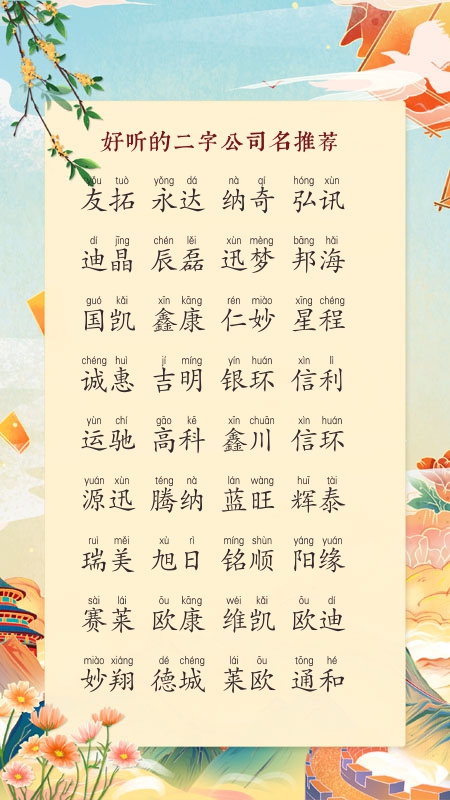 好听的二字公司名推荐
yǒu tuò yǒng dá nà qí hóng xùn
友拓 永达 纳奇 弘讯
dí jīng chén lěi xùn mèng bāng hǎi
迪晶 辰磊 迅梦 邦海
guó kǎi xīn kāng rén miào xīng chéng
国凯 鑫康 仁妙 星程
chéng huì jí míng yín huán xìn lì
诚惠 吉明 银环 信利
yùn chí gāo kē xīn chuān xìn huán
运驰 高科 鑫川 信环
yuán xùn téng nà lán wàng huī tài
源迅 腾纳 蓝旺 辉泰
ruì měi xù rì míng shùn yáng yuán
瑞美 旭日 铭顺 阳缘
sài lái ōu kāng wéi kǎi ōu dí
赛莱 欧康 维凯 欧迪
miào xiáng dé chéng lái ōu tōng hé
妙翔 德城 莱欧 通和